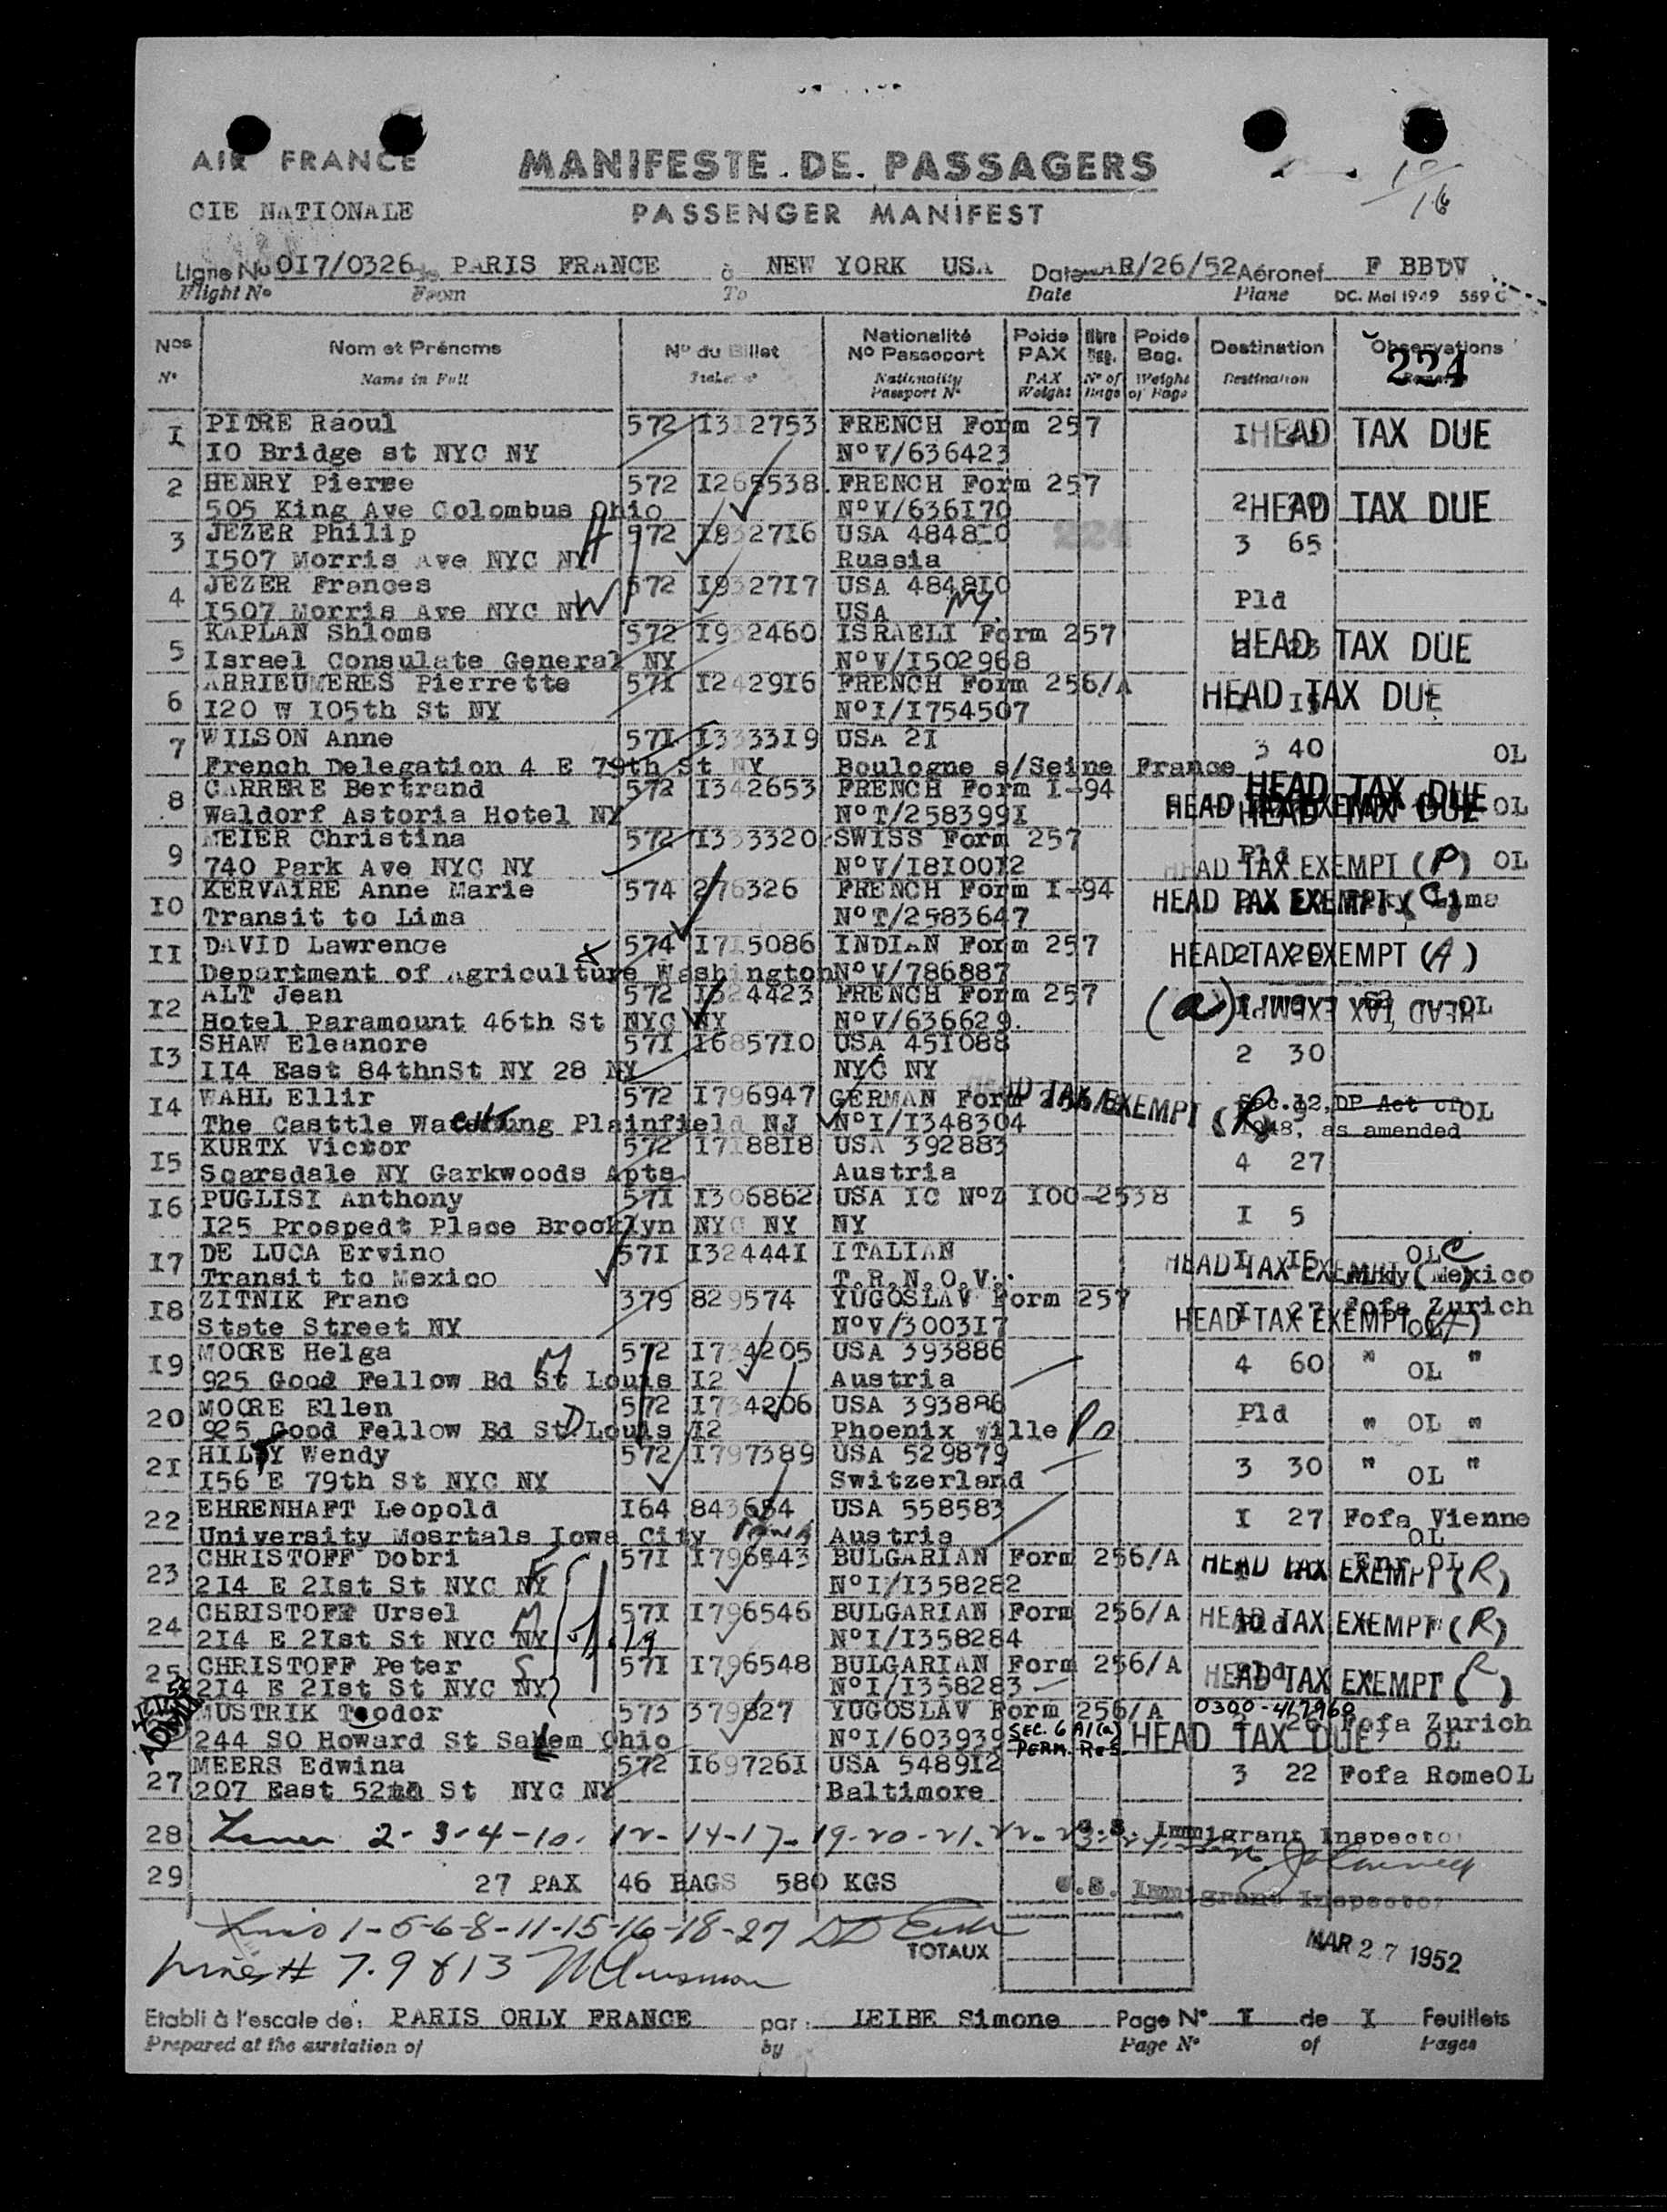 AIR FRANCE
MANIFESTE.DE.PASSAGERS
CIE NATIONALE
PASSENGER MANIFEST
16
Ligne No 0I7/0326 de PARIS FRANCE à NEW YORK USA Date AR/26/52 Aéronef F BBDV
Flight No From To Date Plane DC. Mai 1949 559 C
Nos Nom et Prénoms No du Billet Nationalité No Passeport Poids PAX Nbre Bag. Poids Bag. Destination Observations
No Name in Full Ticket No Nationality Passport No PAX Weight No of Bags Weight of Bags Destination 224
I PITRE Raoul 572 I3I2753 FRENCH Form 257 I HEAD TAX DUE
I0 Bridge st NYC NY No V/636423
2 HENRY Pierre 572 I265538 FRENCH Form 257 2 HEAD TAX DUE
505 King Ave Colombus Ohio No V/636I70
3 JEZER Philip H 572 I8327I6 USA 4848I0 224 3 65
I507 Morris Ave NYC NY Russia
4 JEZER Frances W 572 I9327I7 USA 4848I0 Pld
I507 Morris Ave NYC NY USA NY.
5 KAPLAN Shloms 572 I932460 ISRAELI Form 257 HEAD TAX DUE
Israel Consulate General NY No V/I502968
6 ARRIEUMERES Pierrette 57I I2429I6 FRENCH Form 256/A HEAD TAX DUE
I20 W I05th St NY No I/I754507
7 WILSON Anne 57I I3333I9 USA 2I 3 40 OL
French Delegation 4 E 79th St NY Boulogne s/Seine France
8 CARRERE Bertrand 572 I342653 FRENCH Form I-94 HEAD TAX DUE OL
Waldorf Astoria Hotel NY No T/258399I
9 MEIER Christina 572 I333320 SWISS Form 257 Pld HEAD TAX EXEMPT (P) OL
740 Park Ave NYC NY No V/I8I00I2
I0 KERVAIRE Anne Marie 574 276326 FRENCH Form I-94 HEAD TAX EXEMPT (C) Lima
Transit to Lima No T/2583647
II DAVID Lawrence 574 I7I5086 INDIAN Form 257 HEAD TAX EXEMPT (A)
Department of Agriculture Washington No V/786887
I2 ALT Jean 572 I324423 FRENCH Form 257 (a) HEAD TAX EXEMPT OL
Hotel Paramount 46th St NYC NY No V/636629.
I3 SHAW Eleanore 57I I6857I0 USA 45I088 2 30
II4 East 84thnSt NY 28 NY NYC NY
I4 WAHL Ellir 572 I796947 GERMAN Form HEAD TAX EXEMPT (R) Sec.12, DP Act of OL
The Casttle Watchung Plainfield NJ No I/I348304 1948, as amended
I5 KURTX Victor 572 I7I88I8 USA 392883 4 27
Scarsdale NY Garkwoods Apts Austria
I6 PUGLISI Anthony 57I I306862 USA IC NoZ I00-2538 I 5
I25 Prospedt Place Brooklyn NYC NY NY
I7 DE LUCA Ervino 57I I32444I ITALIAN I I5 OL C
Transit to Mexico T.R.N.O.V. HEAD TAX EXEMPT ( ) Mexico
I8 ZITNIK Franc 379 829574 YUGOSLAV Form 257 I 27 Fofa Zurich
State Street NY No V/3003I7 HEAD TAX EXEMPT OL
I9 MOORE Helga M 572 I734205 USA 393886 4 60 " OL "
925 Good Fellow Bd St Louis I2 Austria
20 MOORE Ellen 572 I734206 USA 393886 Pld " OL "
925 Good Fellow Bd St D Louis I2 Phoenix Wille Pa
2I HILTY Wendy 572 I797389 USA 529879 3 30 " OL "
I56 E 79th St NYC NY Switzerland
22 EHRENHAFT Leopold I64 843654 USA 558583 I 27 Fofa Vienne
University Mosrtals Iowa City Iowa Austria OL
23 CHRISTOFF Dobri F 57I I796543 BULGARIAN Form 256/A HEAD TAX EXEMPT (R)
2I4 E 2Ist St NYC NY No I/I358282
24 CHRISTOFF Ursel M 57I I796546 BULGARIAN Form 256/A HEAD TAX EXEMPT (R)
2I4 E 2Ist St NYC NY No I/I358284
25 CHRISTOFF Peter S 57I I796548 BULGARIAN Form 256/A HEAD TAX EXEMPT (R)
2I4 E 2Ist St NYC NY No I/I358283
MUSTRIK Teodor 573 379827 YUGOSLAV Form 256/A 0300-417960 Fofa Zurich
244 SO Howard St Salem Ohio No I/603939 SEC. 6 A1(a) PERM. RES. HEAD TAX DUE OL
27 MEERS Edwina 572 I69726I USA 548912 3 22 Fofa Rome OL
207 East 52th St NYC NY Baltimore
28 2-3-4-10-12-14-17-19-20-21-22-23 U.S. Immigrant Inspector
29 27 PAX 46 BAGS 580 KGS
U.S. Immigrant Inspector
1-5-6-8-11-15-16-18-27
TOTAUX
MAR 27 1952
7.9 & 13
Etabli à l'escale de: PARIS ORLY FRANCE par: LEIBE Simone Page No I de I Feuillets
Prepared at the airstation of by Page No of Pages